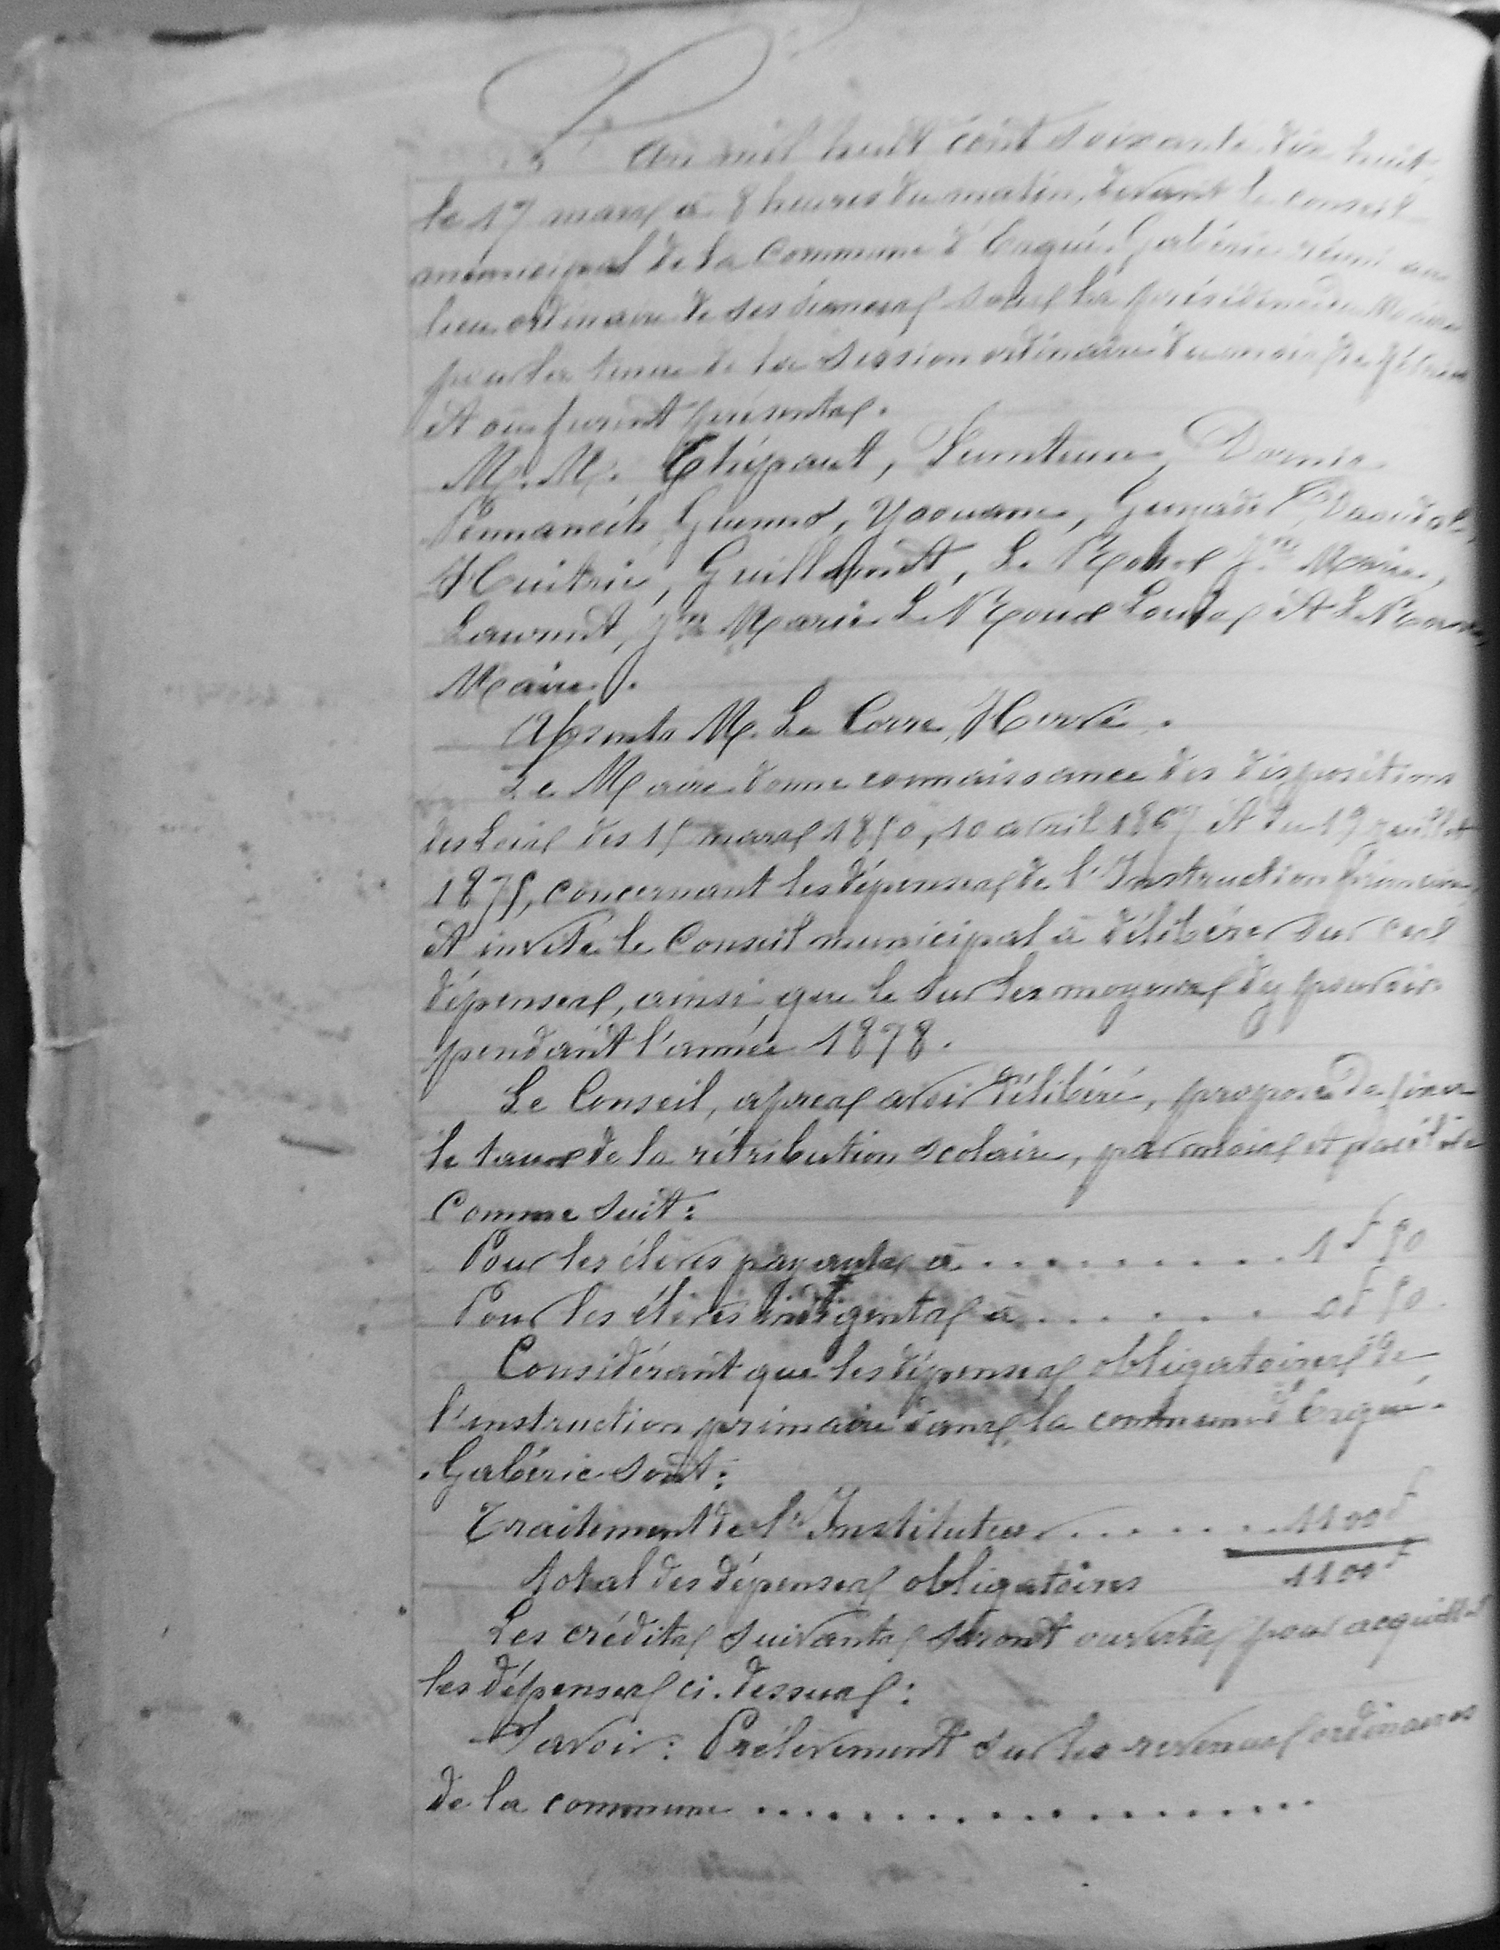 L'an mil huit cent soixante dix huit,
le 17 mars à 8 heures du matin, devant le conseil
municipal de la Commune d'Ergué-Gabéric réuni au
lieu ordinaire de ses séances sous la présidence du Maire
pour la tenue de la session ordinaire du mois de février
et où furent présents.
M. M. Thépaut, Dornic
Pennanéch, Guenno, Yaouanc, Gourmelen
Huitric, Guillamot, Le Jn Marie,
Laurent, Jn Marie Le Roux Louis et Le
Maire.
Absents M. Le Corre, Hervé.
Le Maire donne connaissance des dispositions
des Lois des 15 mars 1850, 10 avril 1867 et du 19 juillet
1875, concernant les dépenses de l'Instruction primaire,
et invite le Conseil municipal à délibérer sur ces
dépenses, ainsi que le sur les moyens d'y pourvoir
pendant l'année 1878.
Le Conseil, après avoir délibéré, propose de fixer
le taux de la rétribution scolaire, par mois et par élève
Comme suit :
Pour les élèves payants à .......... 1f 50
Pour les élèves indigents à ........ 0f 50
Considérant que les dépenses obligatoires de
l'instruction primaire dans la commune d'Ergué-
Gabéric sont :
Traitement de l'Instituteur ........ 1100f
total des dépenses obligatoires 1100f
Les crédits suivants seront ouverts pour acquitter
les dépenses ci-dessus :
Savoir : Prélèvement sur les revenus ordinaires
de la commune ....................